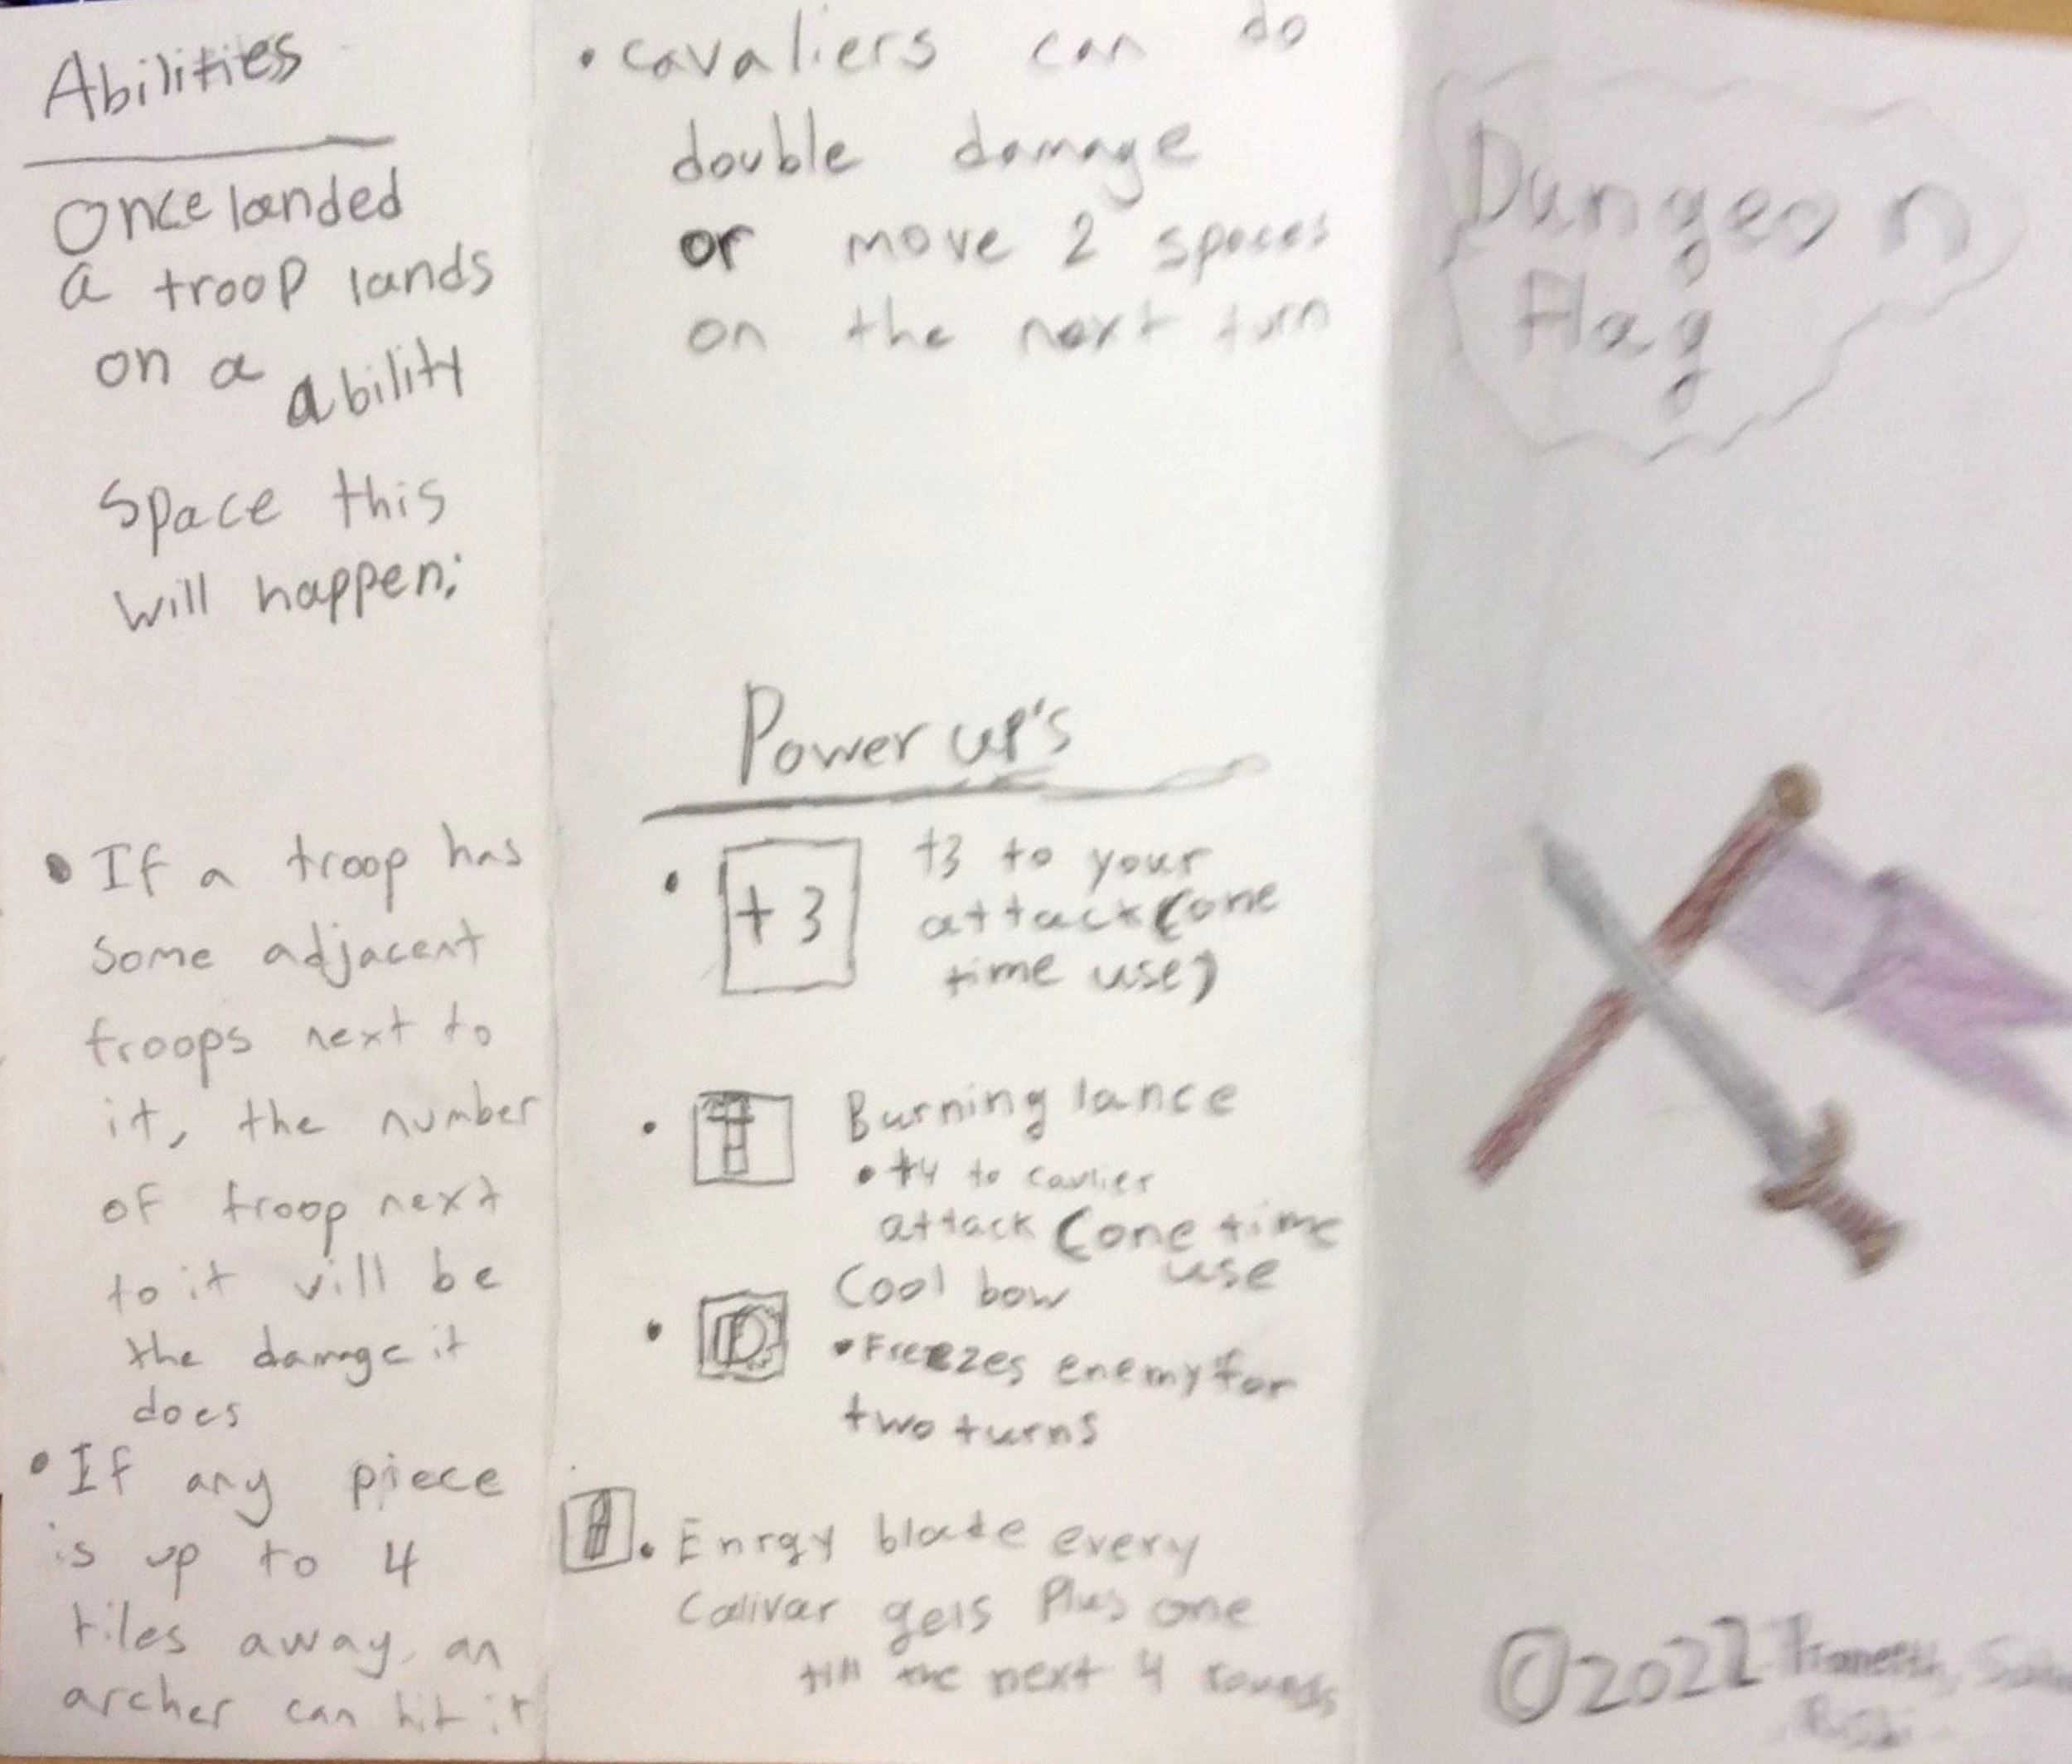 Abilities
Once landed
a troop lands
on a ability
Space this
will happen:
• If a troop has
some adjacent
troops next to
it, the number
of troop next
to it vill be
the damage it
does
• If any piece
is up to 4
tiles away, an
archer can hit it
• cavaliers can do
double damage
or move 2 spaces
on the next turn
Power up's
• +3 +3 to your
attack (one
time use)
• Burning lance
• +4 to cavlier
attack (one time
use
• Cool bow
• Freezes enemy for
two turns
• Enrgy blade every
Calivar gets Plus one
till the next 4 rounds
Dungeon
Flag
©2022